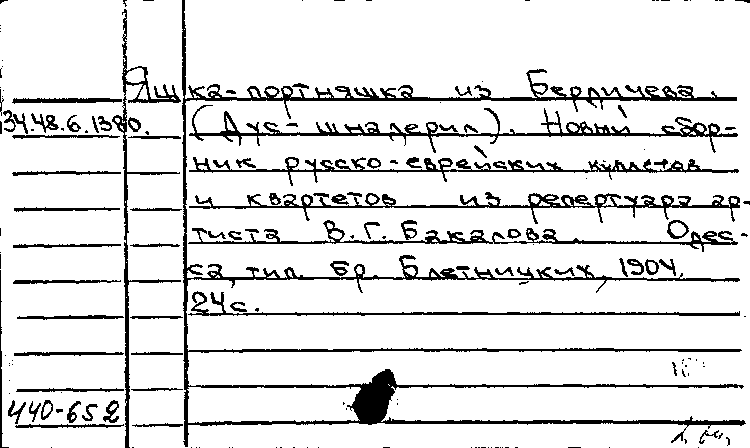 Яшка-портняшка из Бердичева.
34.48.6.1380. (Дус-шнадерил). Новый сбор-
ник русско-еврейских куплетов
и квартетов из репертуара ар-
тиста В.Г. Бакалова. Одес-
са, тип. бр. Блетницких, 1904.
24с.
440-652